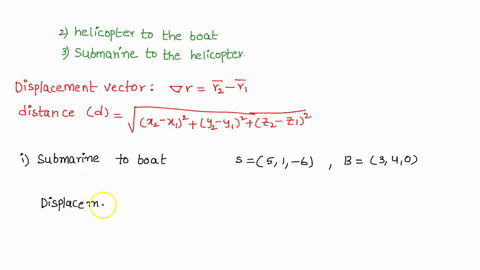 2) helicopter to the boat
3) Submarine to the helicopter.
Displacement vector: ▽r = r̅₂ - r̅₁
distance (d) = √(x₂-x₁)²+(y₂-y₁)²+(z₂-z₁)²
i) Submarine to boat S=(5,1,-6), B=(3,4,0)
Displacem.